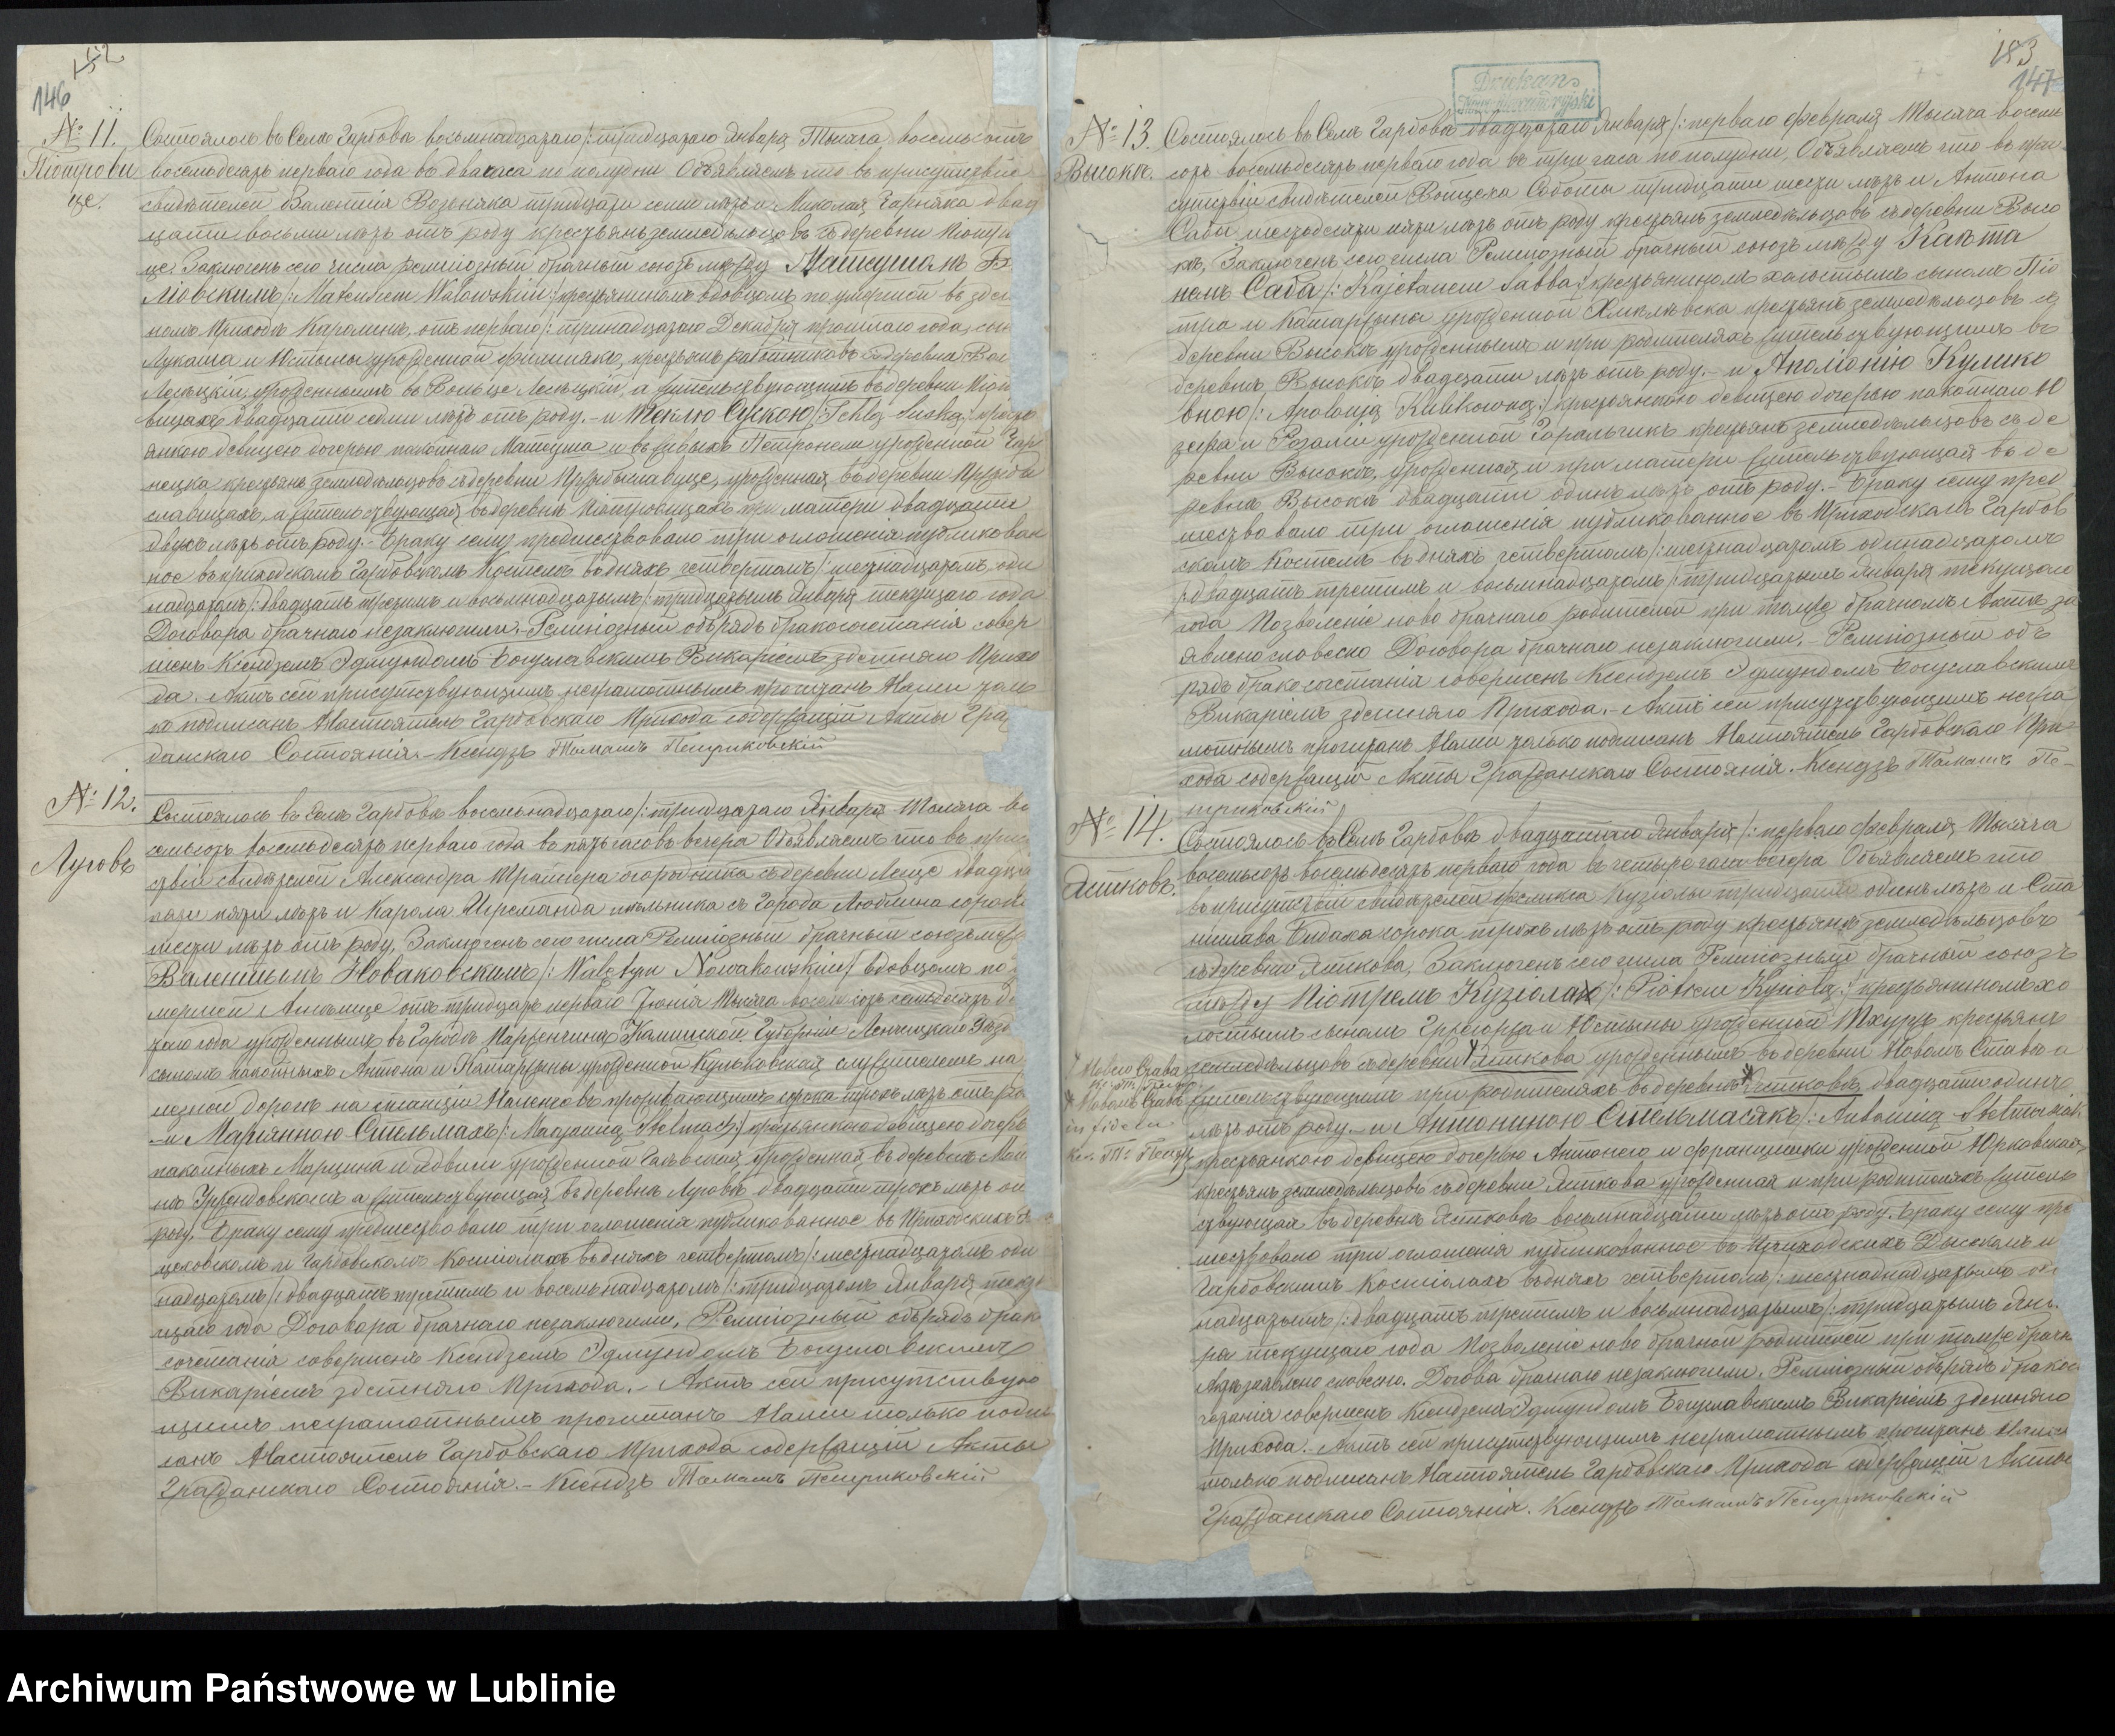 152
146
№ 11.
Піотрови
це.
Состоялось въ Селѣ Гарбовѣ восьмнадцатаго /: тридцатаго Января Тысяча восемьсотъ
восемьдесятъ перваго года въ два часа по полудни Объявляемъ что въ присутствіи
свидѣтелей Валентія Возеняка тридцати семи лѣтъ и Миколая Гарняка двад
цати восьми лѣтъ отъ роду крестьянъ земледѣльцовъ съ деревни Піотро
це. Заключенъ сего числа религіозный брачный союзъ между Матеушемъ
ловскимъ /: Mateuszem Wałowskim :/ крестьяниномъ вдовцомъ по умершей въ здѣш
номъ Приходѣ Каролинѣ, отъ перваго /: тринадцатаго Декабря прошлаго года, сын
Лукаша и Юстыны урожденной Филипякъ, крестьянъ работниковъ съ деревни Вол
урожденнымъ въ а жительствующимъ въ деревни Піот
вицахъ двадцати семи лѣтъ отъ роду. - и Теклю Сускою /: Teklą Suską :/ кресть
янкою дѣвицею дочерью покойнаго Матеуша и въ живыхъ Петронели урожденной Гар
нецка крестьянъ земледѣльцовъ съ деревни Пржибыславице, урожденная въ деревни Пржибы
славицахъ, а жительствующая въ деревни Піотровицахъ при матери двадцати
двухъ лѣтъ отъ роду. - Браку сему предшествовало три оглашенія публикован
ное въ приходскомъ Гарбовскомъ Костелѣ въ дняхъ четвертомъ /: шестнадцатомъ, оди
надцатомъ /: двадцать третимъ и восьмнадцатымъ /: тридцатымъ Января текущаго года
Договора брачнаго незаключили. - Религіозный обрядъ бракосочетанія совер
шенъ Ксендземъ Эдмундомъ Богуславскимъ Викаріемъ здѣшняго Прихо
да. Актъ сей присутствующимъ неграмотнымъ прочитанъ Нами толь
ко подписанъ Настоятель Гарбовскаго Прихода содержащій Акты Граж
данскаго Состоянія. - Ксендзъ Томашъ Петриковскій
№ 12.
Луговъ
Состоялось въ Селѣ Гарбовѣ восемьнадцатаго /: тридцатаго Января Тысяча во
семьсотъ восемьдесятъ перваго года въ пять часовъ вечера Объявляемъ что въ прису
ствіи свидѣтелей Александра огородника съ деревни Лесце двадца
пяти лѣтъ и Карола мельника съ Города Люблина сорока
шести лѣтъ отъ роду, Заключенъ сего числа Религіозный брачный союзъ между
Валентымъ Новаковскимъ /: Walentym Nowakowskim :/ вдовцомъ по у
мершей отъ тридцать перваго Іюнія Тысяча восемьсотъ семьдесятъ де
таго года урожденнымъ въ Городѣ Калишской Губерніи Ленчицкаго Уѣзда
сыномъ покойныхъ Антона и Катаржыны урожденной Кульковская служителемъ на
лезной дорогѣ на станціи Наленчовъ проживающимъ сорока трехъ лѣтъ отъ роду
- и Маріянною Стельмахъ /: Maryanną Stelmach :/ крестьянкою дѣвицею дочерью
покойныхъ Марцина и Ядвиги урожденной урожденная въ деревнѣ
а жительствующая въ деревнѣ Луговѣ двадцати трехъ лѣтъ отъ
роду. Браку сему предшествовало три оглашенія публикованное въ Приходскихъ
цоховскомъ и Гарбовскомъ Костіолахъ въ дняхъ четвертомъ /: шестнадцатомъ оди
надцатомъ /: двадцать третимъ и восемьнадцатомъ /: тридцатомъ Января теку
щаго года Договора брачнаго незаключили, Религіозный обрядъ брако
сочетанія совершенъ Ксендземъ Эдмундомъ Богуславскимъ
Викаріемъ здѣшняго Прихода. - Актъ сей присутствую
щимъ неграмотнымъ прочитанъ Нами только подпи
санъ Настоятель Гарбовскаго Прихода содержащій Акты
Гражданскаго Состоянія. - Ксендзъ Томашъ Петриковскій
183
147
№ 13.
Высоке.
Состоялось въ Селѣ Гарбовѣ двадцатаго Января /: перваго Февраля Тысяча восемь
сотъ восемьдесятъ перваго года въ три часа по полудни, Объявляемъ что въ при
сутствіи свидѣтелей Войцеха Соботы тридцати шести лѣтъ и Антона
Сабы шестьдесяти пяти лѣтъ отъ роду крестьянъ земледѣльцовъ съ деревни Высо
кѣ, Заключенъ сего числа Религіозный брачный союзъ между Каэта
номъ Саба /: Kajetanem Sabba :/ крестьяниномъ холостымъ сыномъ Піо
тра и Катаржыны урожденной Хмелѣвска крестьянъ земледѣльцовъ съ
деревни Высокѣ урожденнымъ и при родителяхъ жительствующимъ въ
деревнѣ Высокѣ двадцати лѣтъ отъ роду. - и Аполіонію Кулико
вною /: Apolonją Kulikowną :/ крестьянкою дѣвицею дочерью покойнаго Ю
зефа и Розаліи урожденной Гаральчикъ крестьянъ земледѣльцовъ съ де
ревни Высокѣ, урожденная, и при матери жительствующая въ де
ревнѣ Высокѣ двадцати одинъ лѣтъ отъ роду. - Браку сему пред
шествовало три оглашенія публикованное въ Приходскомъ Гарбов
скомъ Костелѣ въ дняхъ четвертомъ /: шестнадцатомъ одинадцатомъ
/: двадцать третимъ и восьмнадцатомъ /: тридцатымъ Января текущаго
года Позволеніе ново брачнаго родителей при томже брачномъ Актѣ за
явлено словесно Договора брачнаго незаключили. - Религіозный об
рядъ бракосочетанія совершенъ Ксендземъ Эдмундомъ Богуславскимъ
Викаріемъ здѣшняго Прихода. - Актъ сей присутствующимъ негра
мотнымъ прочитанъ Нами только подписанъ Настоятель Гарбовскаго При
хода содержащій Акты Гражданскаго Состоянія. Ксендзъ Томашъ Пе-
триковскій
№ 14.
Ястковъ.
Состоялось въ Селѣ Гарбовѣ двадцатаго Января /: перваго Февраля Тысяча
восемьсотъ восемьдесятъ перваго года въ четыре часа вечера Объявляемъ что
въ присутствіи свидѣтелей Феликса Кузіолы тридцати одинъ лѣтъ и Ста
нислава Бидака сорока трехъ лѣтъ отъ роду крестьянъ земледѣльцовъ
съ деревни Ясткова, Заключенъ сего числа Религіозный брачный союзъ
между Піотремъ Кузіола /: Piotrem Kuziołą :/ крестьяниномъ хо
лостымъ сыномъ Гржегоржа и Юстыны урожденной Тхуржъ крестьянъ
земледѣльцовъ съ деревни Ясткова урожденнымъ въ деревни Новомъ Ставѣ а
жительствующимъ при родителяхъ въ деревнѣ Ястковѣ, двадцати одинъ
лѣтъ отъ роду. - и Антониною Стельмасякъ /: Antoniną Stelmasiak
крестьянкою дѣвицею дочерью Антонего и Францишки урожденной Юрковская,
крестьянъ земледѣльцовъ съ деревни Ясткова урожденная и при родителяхъ житель
ствующая въ деревнѣ Ястковѣ восьмнадцати лѣтъ отъ роду. Браку сему пред
шествовало три оглашенія публикованное въ Приходскихъ Дысскомъ и
Гарбовскимъ Костіолахъ въ дняхъ четвертомъ /: шестнаднадцатымъ оди
надцатымъ /: двадцать третимъ и восьмнадцатымъ /: тридцатымъ Янва
ря текущаго года Позволеніе ново брачной родителей при томже брачн
Актѣ заявлено словесно. Догова брачнаго незаключили. Религіозный обрядъ бракосо
четанія совершенъ Ксендземъ Эдмундомъ Богуславскимъ Викаріемъ здѣшняго
Прихода. Актъ сей присутствующимъ неграмотнымъ прочитанъ Нами
только подписанъ Настоятель Гарбовскаго Прихода содержащій Акты
Гражданскаго Состоянія. Ксендзъ Томашъ Петриковскій
Новего Става
Новомъ Ставѣ
in fidem
Archiwum Państwowe w Lublinie